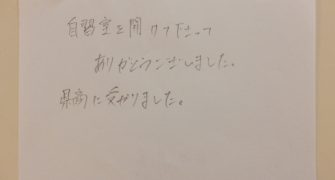 自習室を開けて下さって
ありがとうございました。
県高に受かりました。